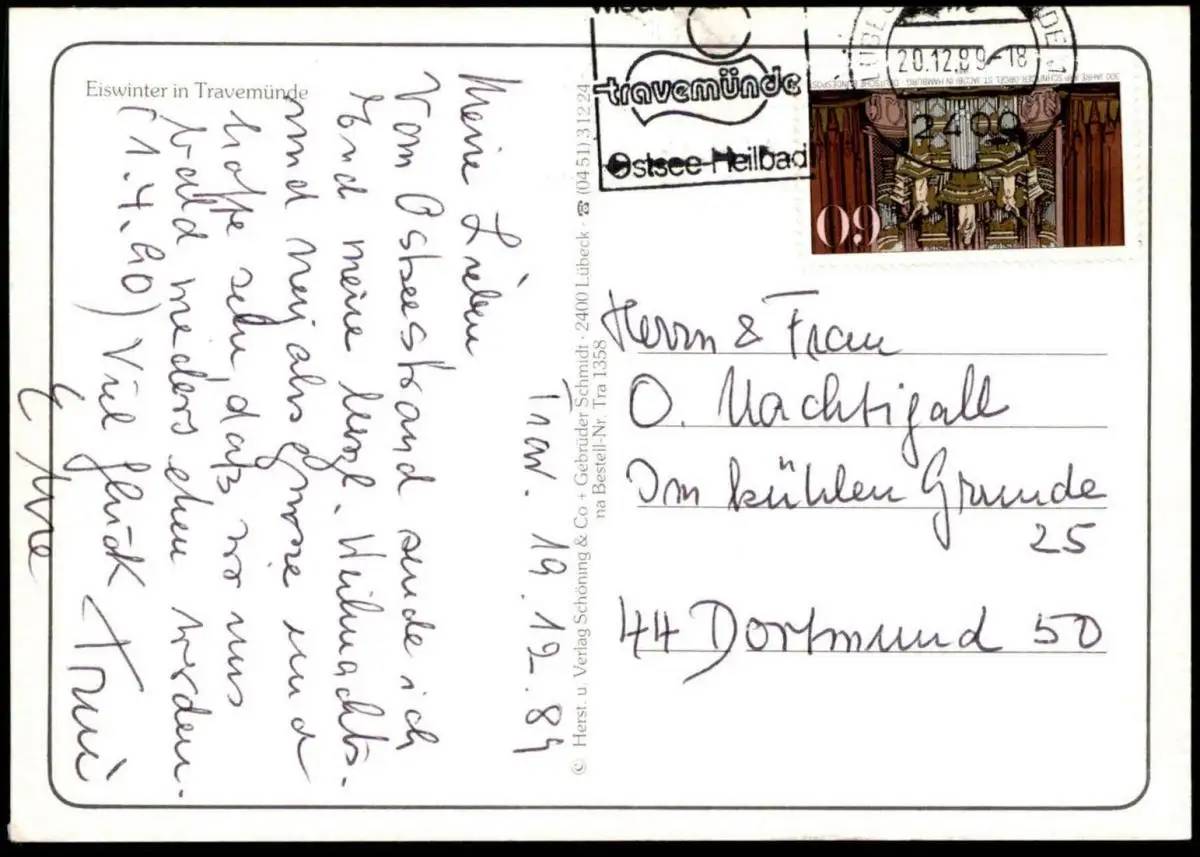 Eiswinter in Travemünde
Trav. 19.12.89
Meine Lieben
Vom Ostseestrand sende ich
Euch meine herzl. Weihnachts-
und Neujahrsgrüsse und
hoffe sehr, daß wir uns
bald wieder sehen werden.
(1.4.90) Viel Glück
© Herst. u. Verlag Schöning & Co + Gebrüder Schmidt · 2400 Lübeck · ☎ (04 51) 3 12 24
na Bestell-Nr. Tra 1358
travemünde
Ostsee-Heilbad
20.12.89-18
2400
300 JAHRE ARP SCHNITGER-ORGEL ST. JACOBI IN HAMBURG
DEUTSCHE BUNDESPOST
60
Herrn & Frau
O. Nachtigall
Im kühlen Grunde
25
44 Dortmund 50